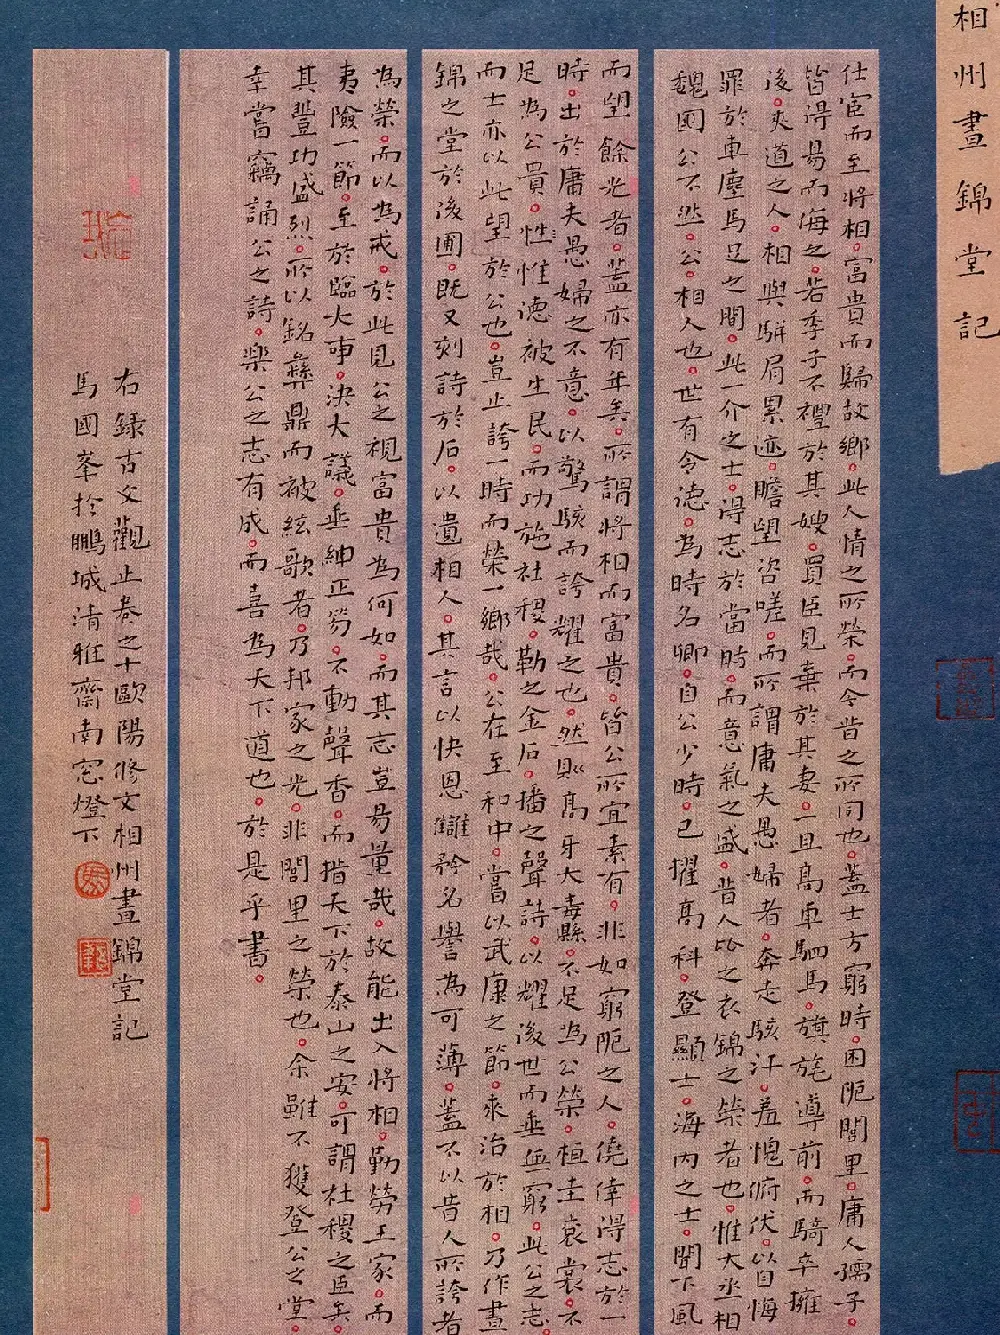 相州晝錦堂記
仕宦而至將相。富貴而歸故鄉。此人情之所榮。而今昔之所同也。蓋士方窮時。困阨閭里。庸人孺子。
皆得易而侮之。若季子不禮於其嫂。買臣見棄於其妻。一旦高車駟馬。旗旄導前。而騎卒擁
後。夾道之人。相與駢肩累迹。瞻望咨嗟。而所謂庸夫愚婦者。奔走駭汗。羞愧俯伏。以自悔
罪於車塵馬足之間。此一介之士。得志於當時。而意氣之盛。昔人比之衣錦之榮者也。惟大丞相
魏國公不然。公。相人也。世有令德。為時名卿。自公少時。已擢高科。登顯士。海內之士。聞下風
而望餘光者。蓋亦有年矣。所謂將相而富貴。皆公所宜素有。非如窮阨之人。僥倖得志於一
時。出於庸夫愚婦之不意。以驚駭而誇耀之也。然則高牙大纛。不足為公榮。桓圭袞裳。不
足為公貴。惟德被生民。而功施社稷。勒之金石。播之聲詩。以耀後世而垂無窮。此公之志。
而士亦以此望於公也。豈止誇一時而榮一鄉哉。公在至和中。嘗以武康之節。來治於相。乃作晝
錦之堂於後圃。既又刻詩於石。以遺相人。其言以快恩讎矜名譽為可薄。蓋不以昔人所誇者
為榮。而以為戒。於此見公之視富貴為何如。而其志豈易量哉。故能出入將相。勤勞王家。而
夷險一節。至於臨大事。決大議。垂紳正笏。不動聲香。而措天下於泰山之安。可謂社稷之臣矣。
其豐功盛烈。所以銘彝鼎而被絃歌者。乃邦家之光。非閭里之榮也。余雖不獲登公之堂。
幸嘗竊誦公之詩。樂公之志有成。而喜為天下道也。於是乎書。
右錄古文觀止卷之十歐陽修文相州晝錦堂記
馬國峯於鵬城清雅齋南窓燈下